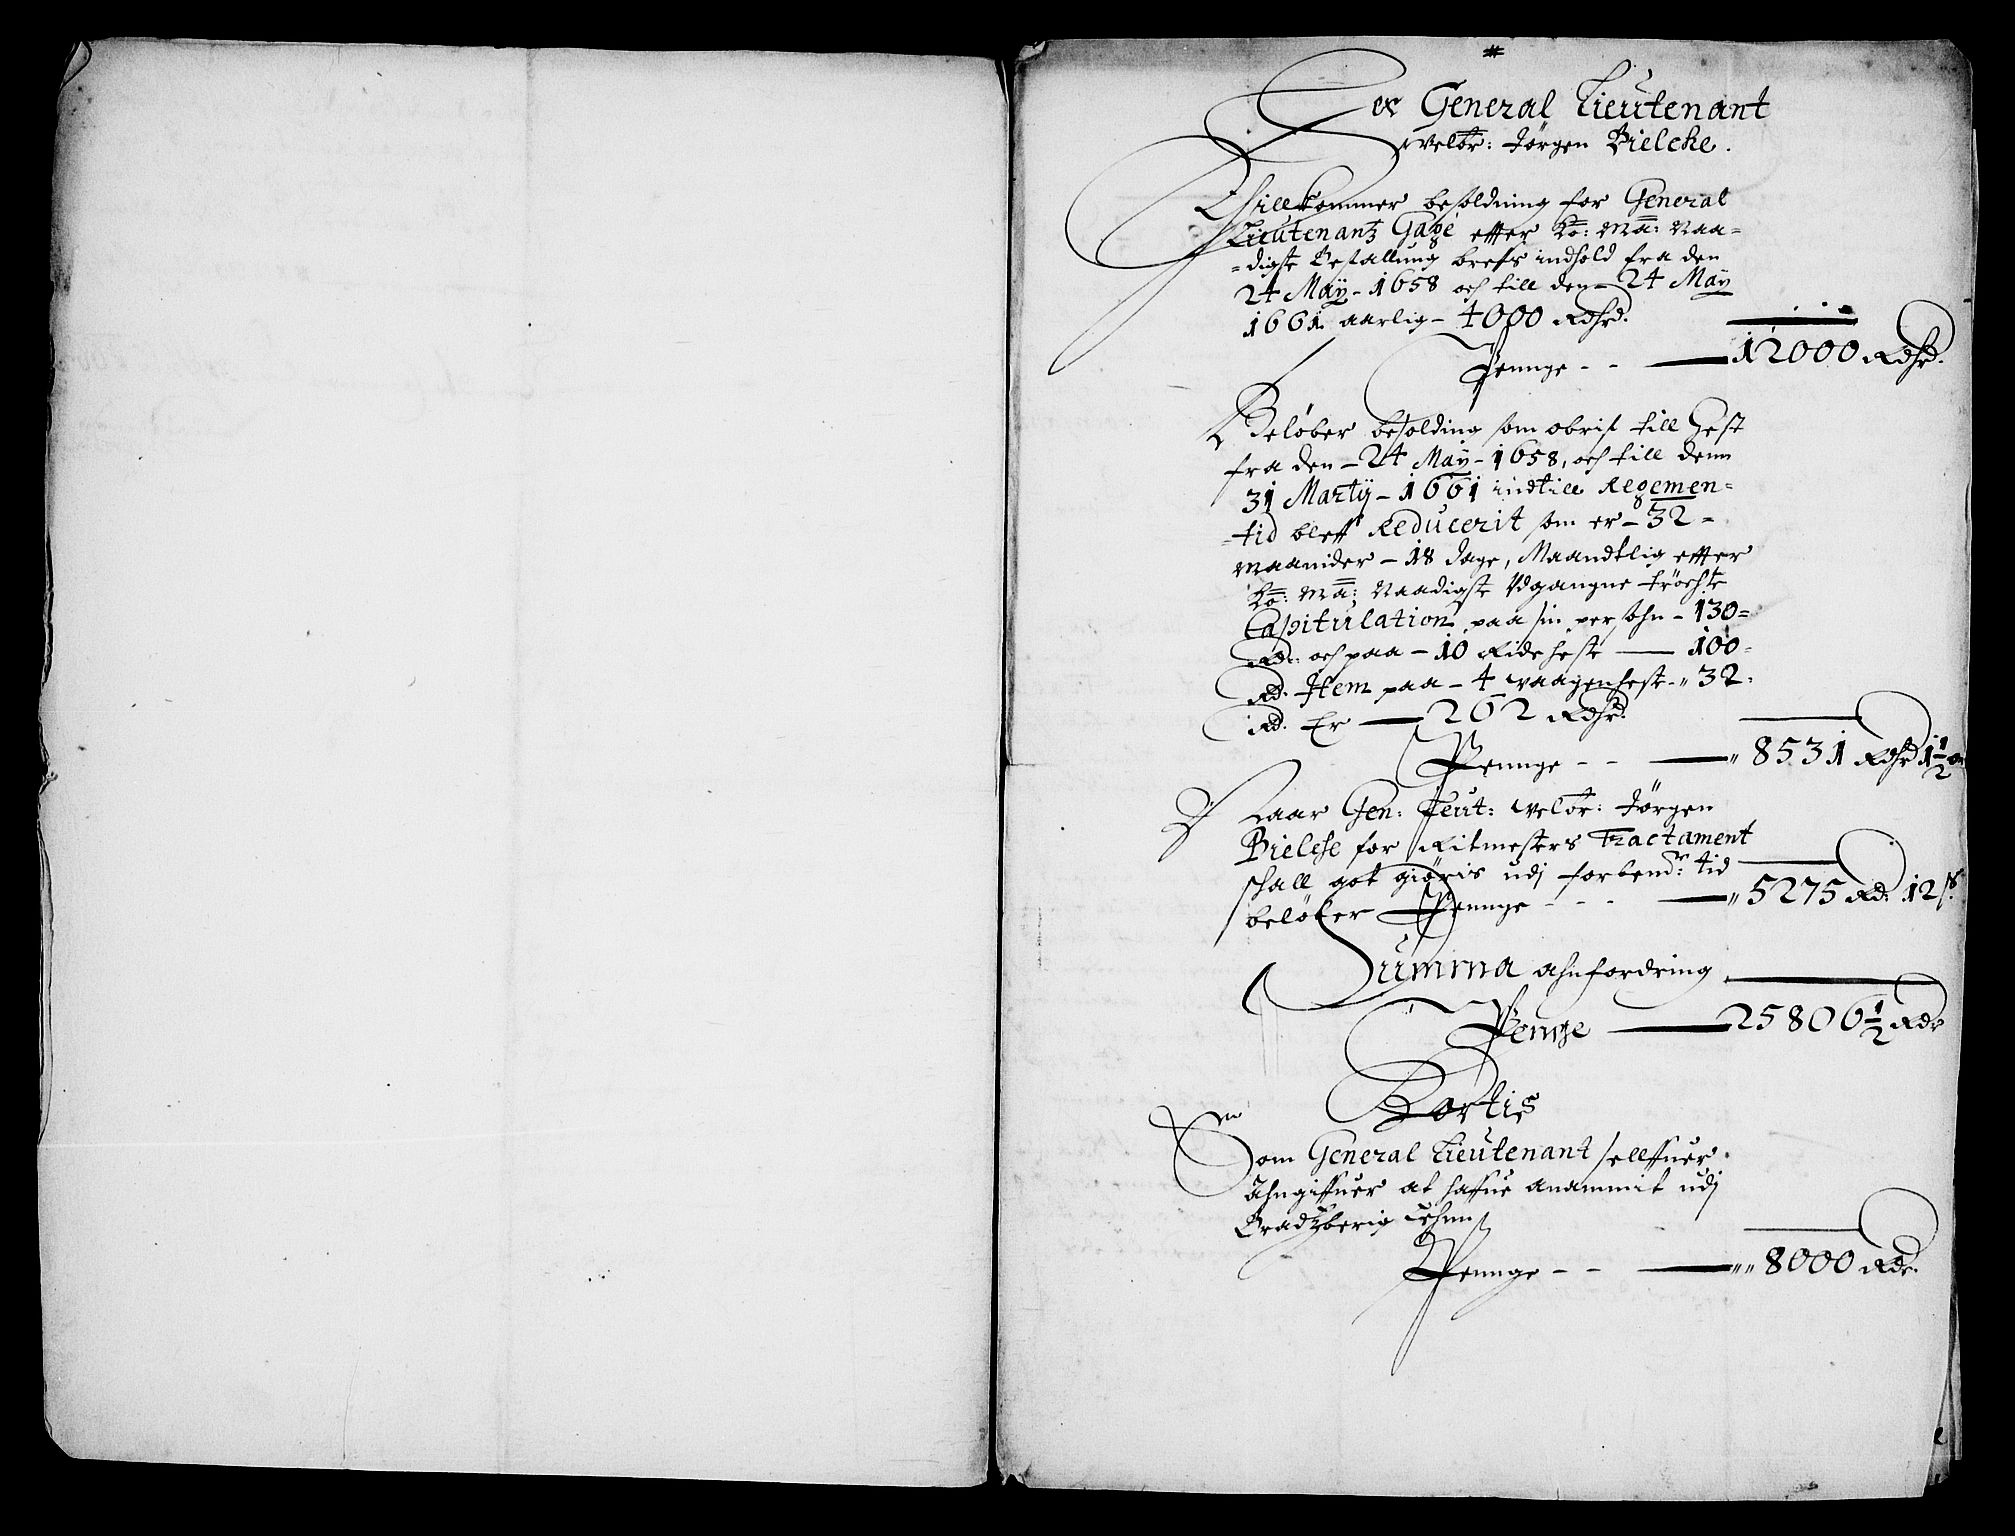 Her General Lieutenant
Welbr: Jørgen Bielche.
Tillkommer besoldning for General
Lieutenantz Gage effter Ko: Ma: Naa=
=digste Bestallung brefs indhold fra den
24 Maÿ - 1658 och till den - 24 Maÿ
1661 aarlig - 4000 Rdhrd.
Pennge - - 12000 Rdhrd.
Beløber besolding som obrist till Hest
fra den - 24 Maÿ - 1658, och till denn
31 Martÿ - 1661 indtill Regemen=
=tid bleff Reducerit som er - 32 =
Maanider - 18 dage, Maandtlig effter
Ko: Ma: Naadigste Udgangne tröchte
Capitulation paa sin persohn - 130=
Rd: och paa - 10 Ride heste - 100=
Rd. Item paa - 4 waagenheste - 32.
Rd. Er - 262 Rdhrd.
Pennge - - 8531 Rdhrd 1½ ort
Naar Gen: Leut: Welbr: Jørgen
Bielche for Ritmesters Tractament
schall got giöris udj forbend:r tid
beløber Pennge - - - 5275 Rd: 12 s.
Summa ahnfordring
Penge 25806½ Rdr
Kortis
Som General Lieutenant sellffuer
Ahngiffuer at haffue anammit udj
Bradtzberig Lehnn
Pennge - - 8000 Rdr.